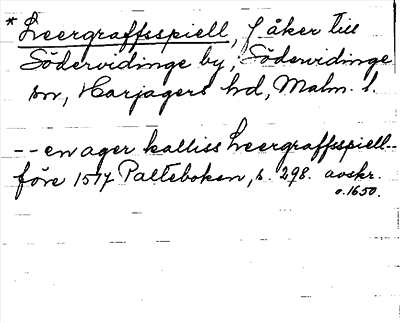 * Leergraffsspiell, f åker till
Södervidinge by, Södervidinge
sn, Harjagers hd, Malm. l.
-- en ager kalliss Leergraffsspiell--
före 1517 Palteboken, s. 298. avskr.
o. 1650.